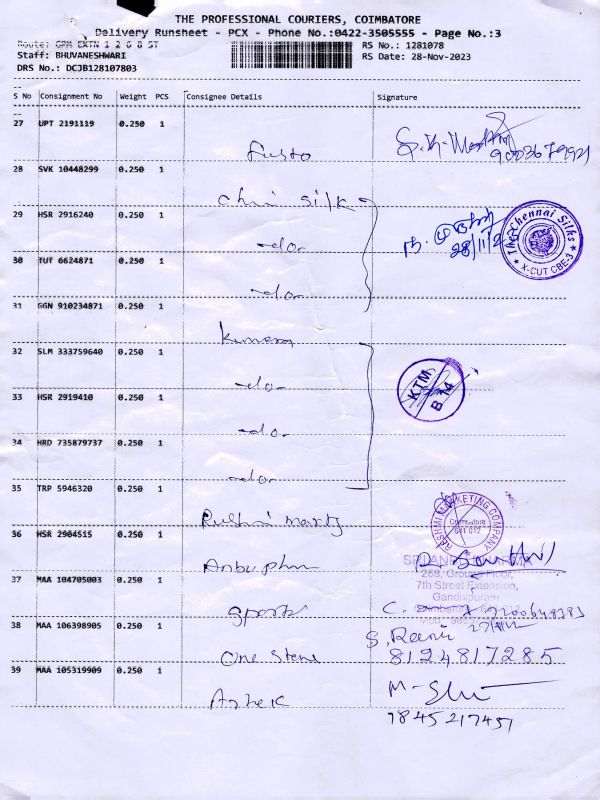 THE PROFESSIONAL COURIERS, COIMBATORE
Delivery Runsheet - PCX - Phone No.:0422-3505555 - Page No.:3
Route: GPM EXTN 1 2 6 8 ST
RS No.: 1281078
Staff: BHUVANESHWARI
RS Date: 28-Nov-2023
DRS No.: DCJB128107803
S No Consignment No Weight PCS Consignee Details Signature
27 UPT 2191119 0.250 1
28 SVK 10448299 0.250 1
chni silk
29 HSR 2916240 0.250 1
-do-
The Chennai Silks
X-CUT CBE-3
30 TUT 6624871 0.250 1
-do-
31 GGN 910234871 0.250 1
32 SLM 333759640 0.250 1
-do-
KTM
B 14
33 HSR 2919410 0.250 1
-do-
34 HRD 735879737 0.250 1
-do-
35 TRP 5946320 0.250 1
RESHMI MARKETING COMPANY
Coimbatore
641 012
36 HSR 2904515 0.250 1
268, Ground Floor,
37 MAA 104705003 0.250 1
7th Street Extension,
Gandhipuram
38 MAA 106398905 0.250 1
8124817285
39 MAA 105319909 0.250 1
9845217451